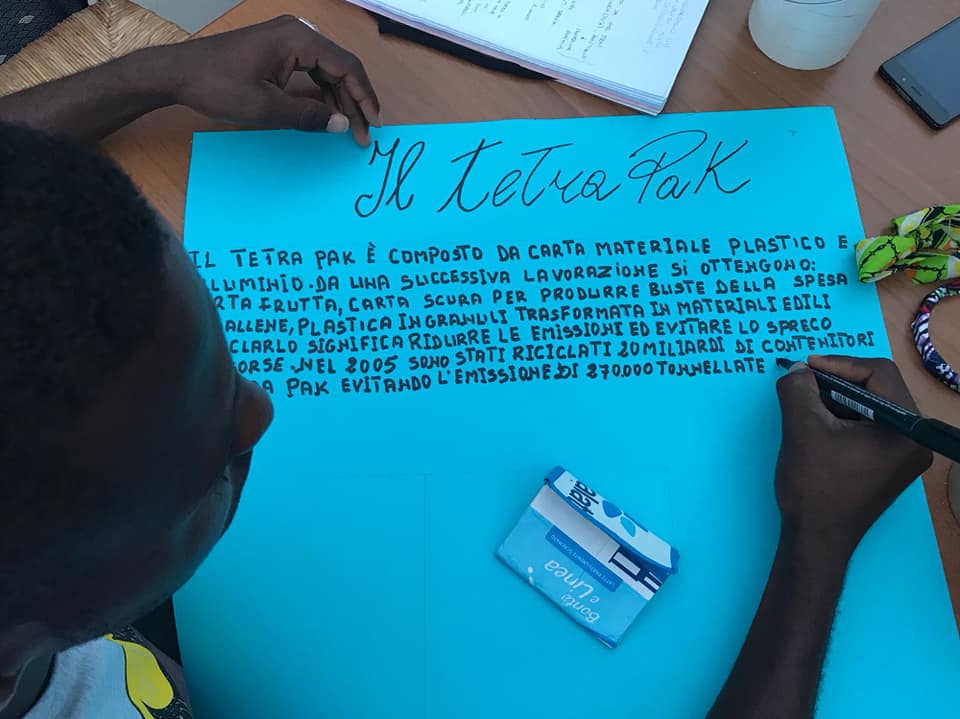 Il tetra Pak
IL TETRA PAK È COMPOSTO DA CARTA MATERIALE PLASTICO E
LLUMINIO. DA UNA SUCCESSIVA LAVORAZIONE SI OTTENGONO:
RTA FRUTTA, CARTA SCURA PER PRODURRE BUSTE DELLA SPESA
ALLENE, PLASTICA IN GRANULI TRASFORMATA IN MATERIALI EDILI
CLARLO SIGNIFICA RIDURRE LE EMISSIONI ED EVITARE LO SPRECO
ORSE. NEL 2005 SONO STATI RICICLATI 20 MILIARDI DI CONTENITORI
A PAK EVITANDO L'EMISSIONE DI 270.000 TONNELLATE
LATTE PARZIALMENTE SCREMATO
Bontà
e Linea